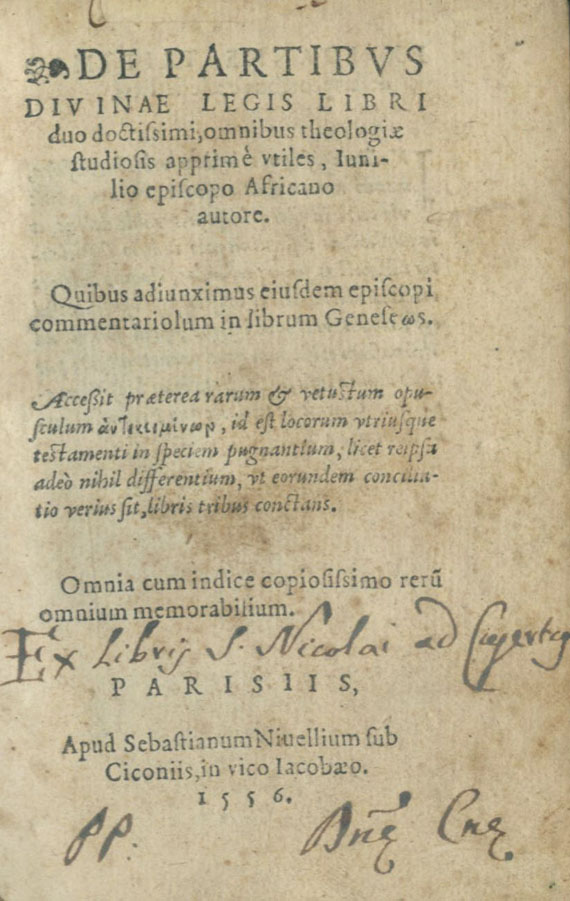 DE PARTIBVS
DIVINAE LEGIS LIBRI
duo doctiſsimi, omnibus theologiæ
ſtudioſis apprimè vtiles, Iuni-
lio epiſcopo Africano
autore.
Quibus adiunximus eiuſdem epiſcopi
commentariolum in librum Geneſεως.
Acceßit præterea rarum & vetuſtum opu-
ſculum ἀντικειμένωρ, id eſt locorum vtriuſque
teſtamenti in ſpeciem pugnantium, licet reipſa
adeò nihil differentium, vt eorundem concilia-
tio verius ſit, libris tribus conſtans.
Omnia cum indice copioſiſsimo rerũ
omnium memorabilium.
Ex Libris S. Nicolai ad
PARISIIS,
Apud Sebaſtianum Niuellium ſub
Ciconiis, in vico Iacobæo.
1556.
PP.